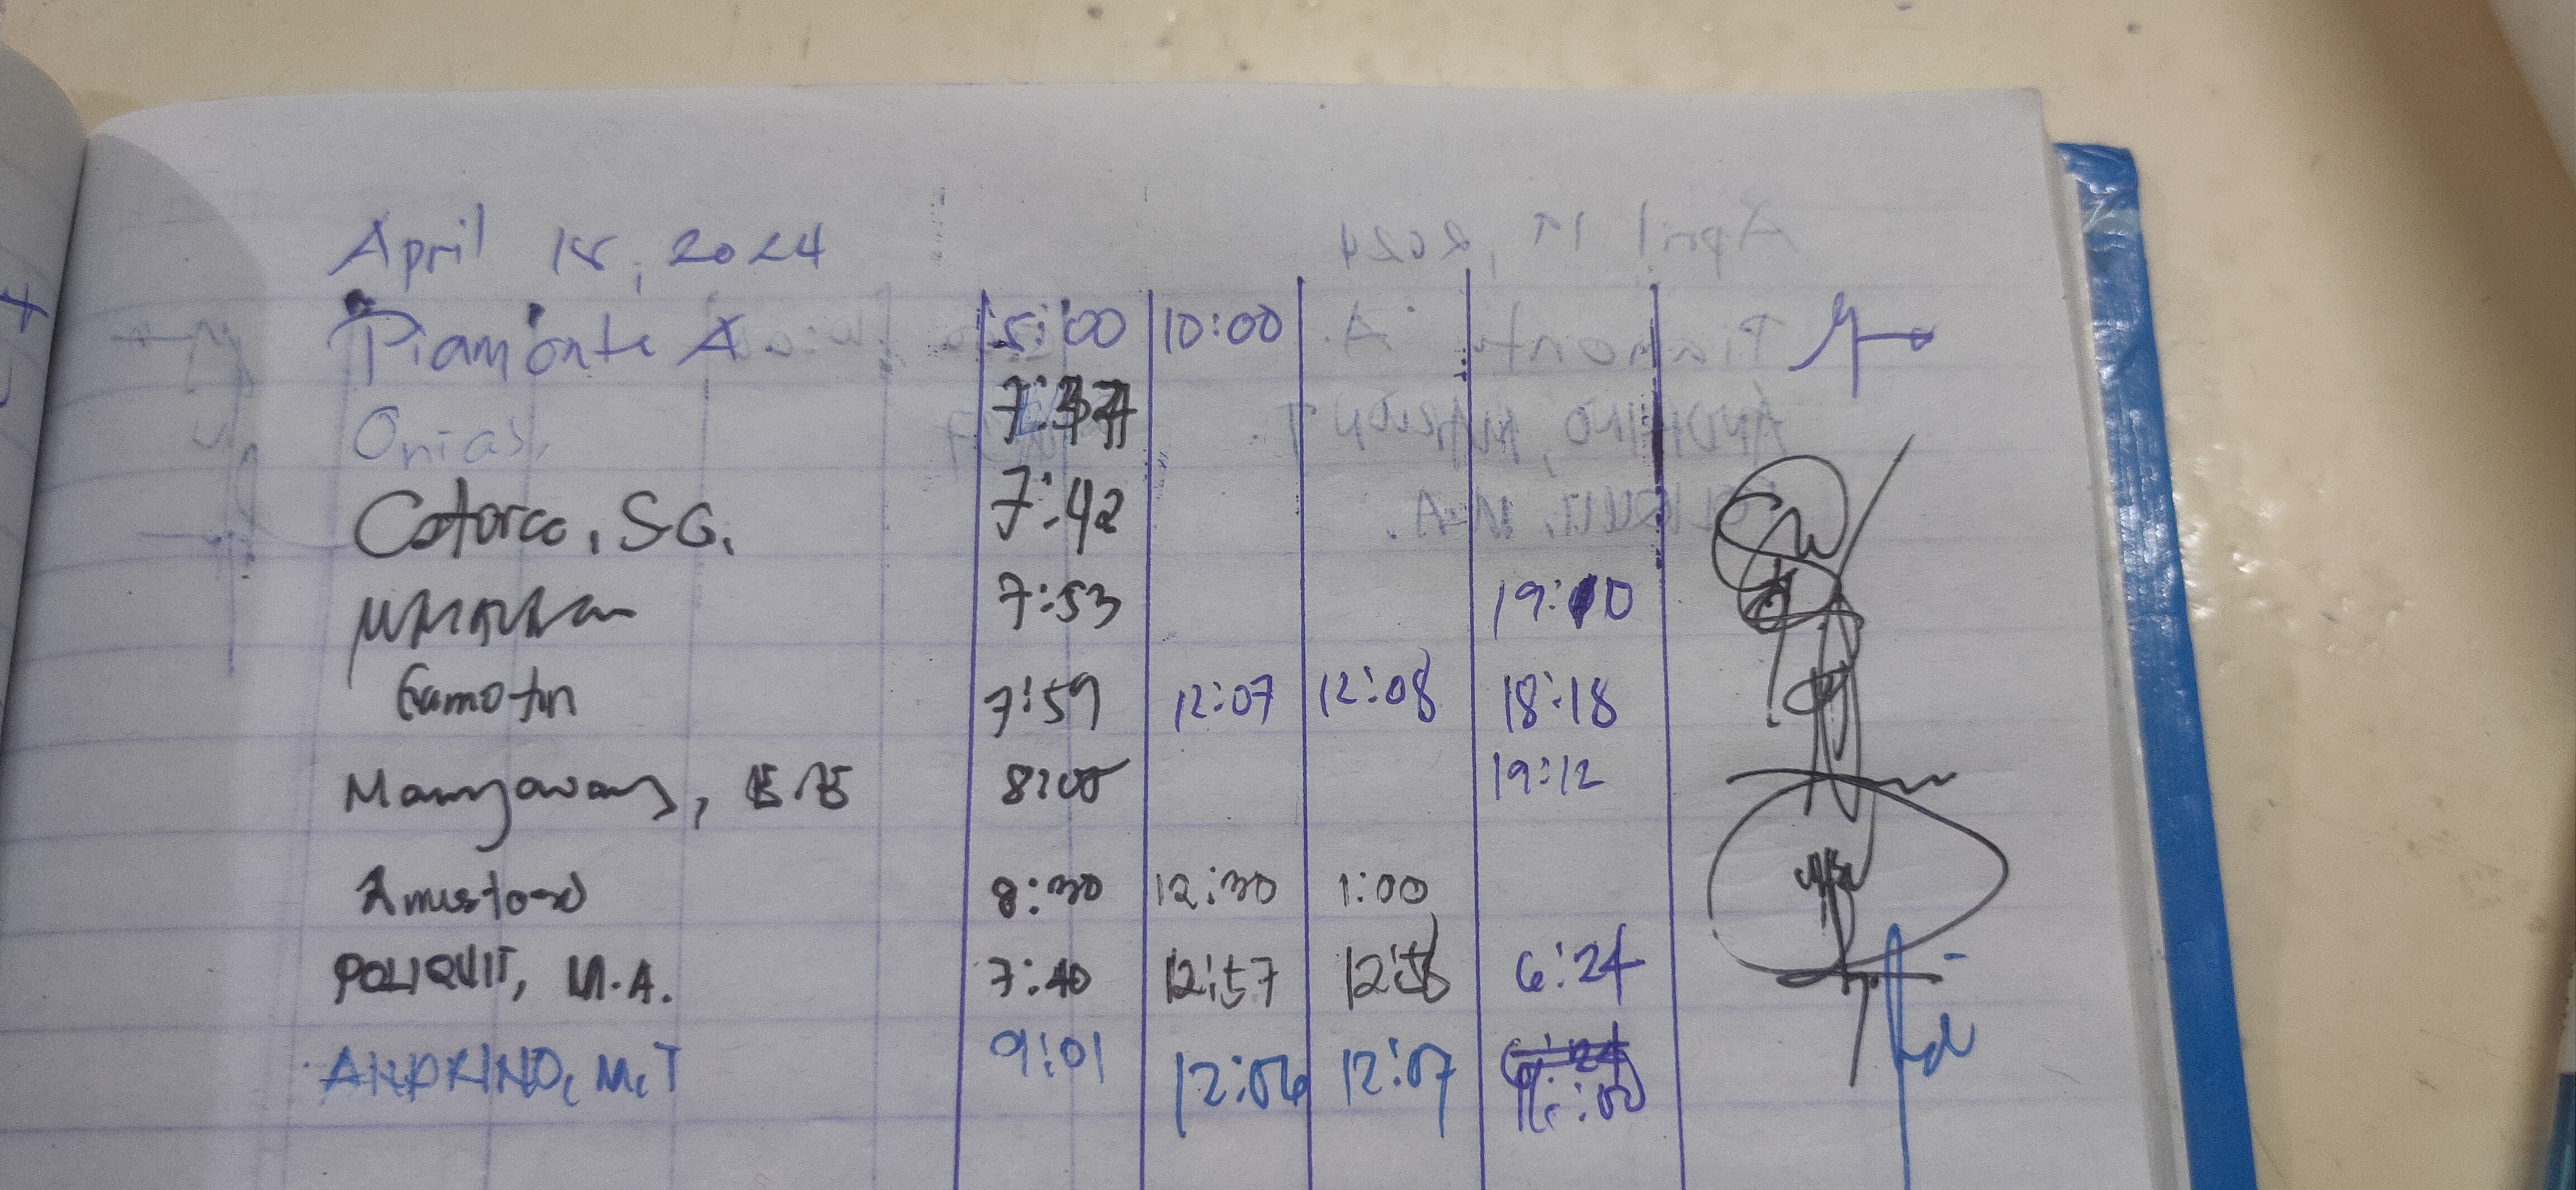 April 18, 2024
Piamonte A. 5:00 10:00
Onias, 7:37
Catorce, S.G. 7:42
7:53 19:10
Gamotin 7:59 12:07 12:08 18:18
8:00 19:12
8:30 12:30 1:00
POLIQUIT, M.A. 7:40 12:57 12:58 6:24
ANDRINO, M.T 9:01 12:06 12:07